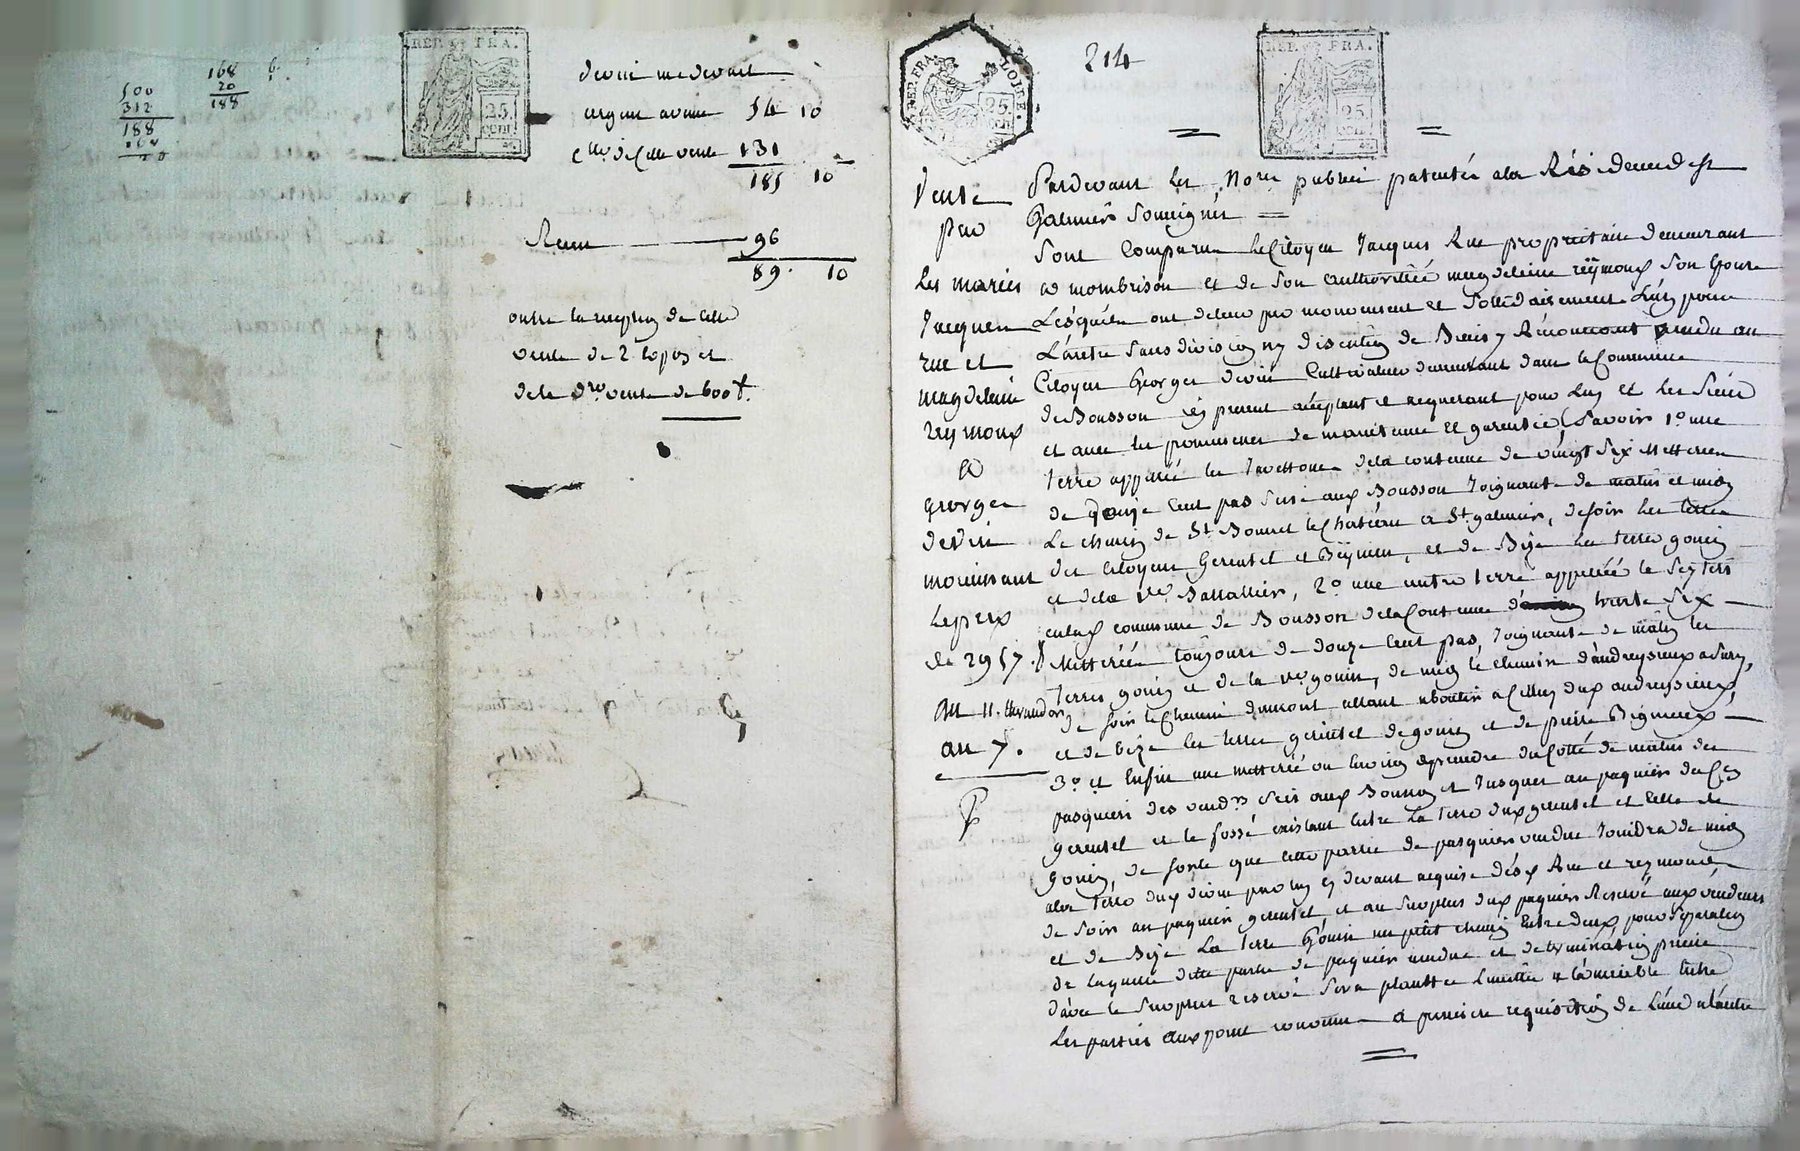 500
312
188
168
20
188
REP. FRA.
25.
cent
devin me devait
argent avancé 54 10
celle vente 131
185 10
Reçu 96
89. 10
outre la reception de cette
vente de 2 copies et
de la vente de 600
REP. FRA. LOIRE.
25.
214
REP. FRA.
25.
cent
Vente
par
Les mariés
Jacques
rue et
magdeleine
reymoux
a
george
devin
moienant
le prix
de 2957
du 11. thermidor
an 7.
Pardevant les No.res publics patentés a la Résidence de St
Galmier soussignés
Sont Comparus le Citoyen Jacques Rue proprietaire demeurant
a mombrison et de son authorittée magdeleine reÿmoux son Epouse
Lesquels ont de leur pro mouvement et sollidairement L'un pour
L'autre sans division ny discution de Biens y Renoncant vendu au
Citoyen George devin Cultivateur demeurant dans la Commune
de Bousson icy present acceptant et requerant pour Luy et les Siens
et avec les promesses de maintenue et garentie, Savoir 1.o une
terre appellée les de la contenue de vingt Six Metterées
de douze Cent pas Sise aux Bousson Joignante de matin et midy
Le chemin de St. Bonnet le Château a St. galmier, de soir les terres
des Citoyens Gerentet et Beynieu, et de Bize les terres gouin
et de la v.e Battallier, 2.o une autre terre appellée le
en lad. commune de Bousson de la Contenue trente Six
Metterées toujours de douze Cent pas, Joignante de matin les
terres gouin et de la v.e gouin, de midy le chemin d'andreysieux a Sury,
de soir le Chemin allant aboutir a Celluy dud. andreysieux,
et de bize les terres gerentet de gouin et de pierre Bigneux,
3.o et Enfin une metterée ou environ a prendre du Cotté de matin des
pasquiers des vend.rs Sis aux Bousson et Jusques au paquier du C.en
gerentet et le fossé existant Entre La terre dud. gerentet et Celle de
gouin, de sorte que cette partie de pasquier vendue Joindra de midy
a la terre dud. devin par luy cy devant acquise des d. Rue et reymoux
de soir au paquier gerentet, et au Surplus dud. paquier Reservé aux vendeurs
et de Bize La terre Gouin un petit chemin Entre deux, pour Separation
de laquelle ditte partie de paquier vendue et determination precise
d'avec le Surplus reservé Sera plantée Limitte a l'amiable Entre
Les parties aux a premiere requisition de L'une a L'autre